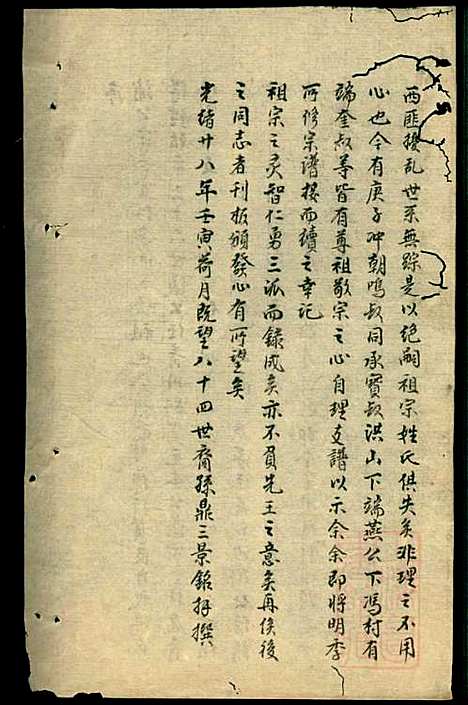 西匪擾乱世系無踪是以绝嗣祖宗姓氏俱失矣非理之不用
心也今有庚子冲朝鸣叔同承寳叔洪山下端燕公下馮村有
端奎叔等皆有尊祖敬宗之心自理支譜以示余余即將明季
所修宗譜接而續之幸记
祖宗之灵智仁勇三派而録成矣亦不負先王之意矣再俟後
之同志者刊板頒發心有所望矣
光緒廿八年壬寅荷月既望八十四世裔孫鼎三景銘拜撰